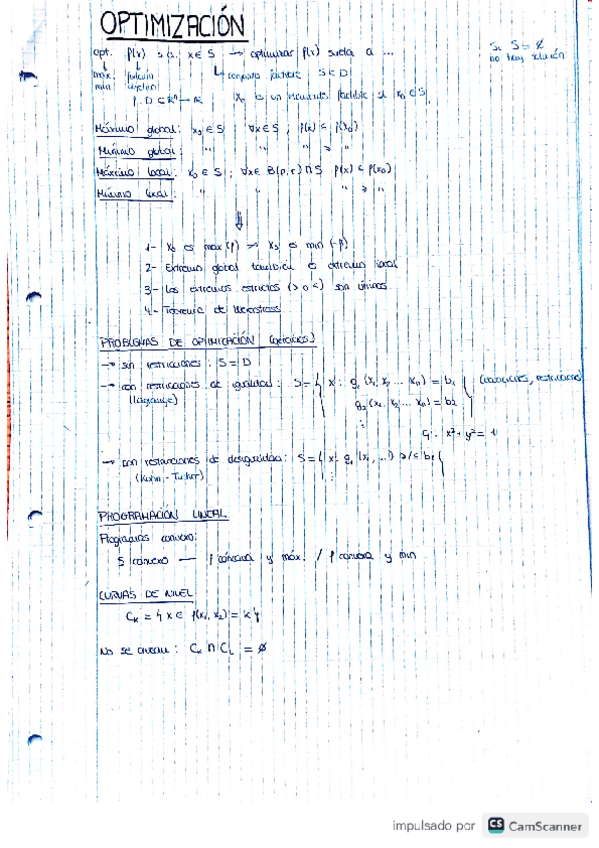 OPTIMIZACIÓN
opt. f(x) s.a. x ∈ S → optimizar f(x) sujeta a ...
Si S = ∅
no hay solución
máx. función ↳ conjunto factible S ⊂ D
min
f: D ⊂ Rⁿ → R x₀ es un elemento factible si x₀ ∈ S.
Máximo global: x₀ ∈ S ; ∀x ∈ S ; f(x) ≤ f(x₀)
Mínimo global: " " " ≥ "
Máximo local: x₀ ∈ S ; ∀x ∈ B(p, r) ∩ S f(x) ≤ f(x₀)
Mínimo local: " " " ≥ "
⇓
1- x₀ es max (f) → x₀ es min (-f)
2- Extremo global también es extremo local
3- Los extremos estrictos (> o <) son únicos
4- Teorema de Weierstrass
PROBLEMAS DE OPTIMIZACIÓN (ejercicios)
→ sin restricciones: S = D
→ con restricciones de igualdad: S = { x : g₁ (x₁, x₂ ... xn) = b₁ } (restricciones)
(Lagrange) g₂ (x₁, x₂ ... xn) = b₂
x² + y² = 1
→ con restricciones de desigualdad: S = { x : g₁ (x₁, ...) ≥/≤ b₁ }
(Kuhn - Tucker)
PROGRAMACIÓN LINEAL
Programas convexo:
S convexo — f cóncava y máx. / f convexa y min
CURVAS DE NIVEL
Cκ = { x ∈ f(x₁, x₂) = κ }
No se cruzan: Cκ ∩ C_L = ∅
impulsado por CS CamScanner